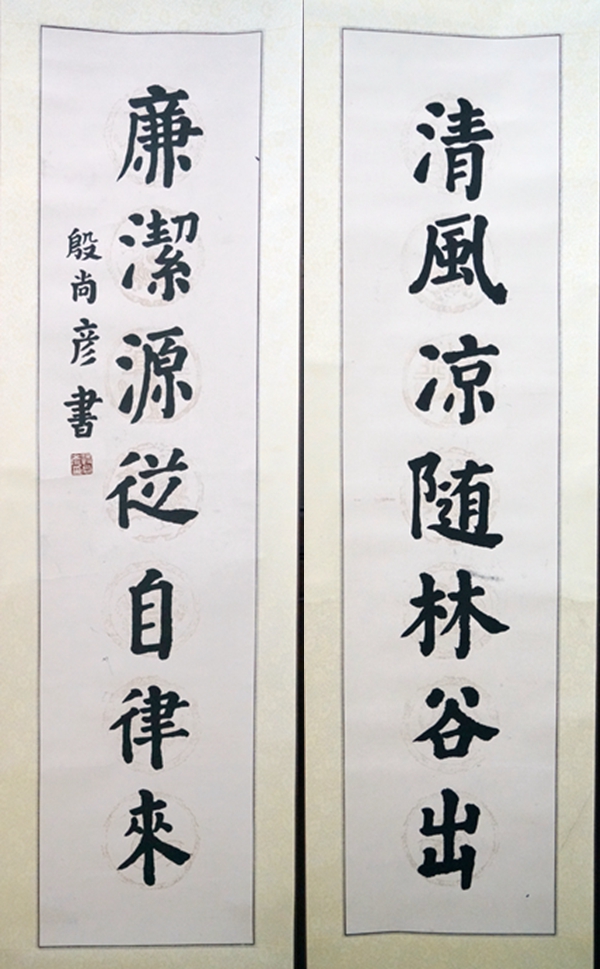 清風凉随林谷出
廉潔源從自律來
殷尚彦書